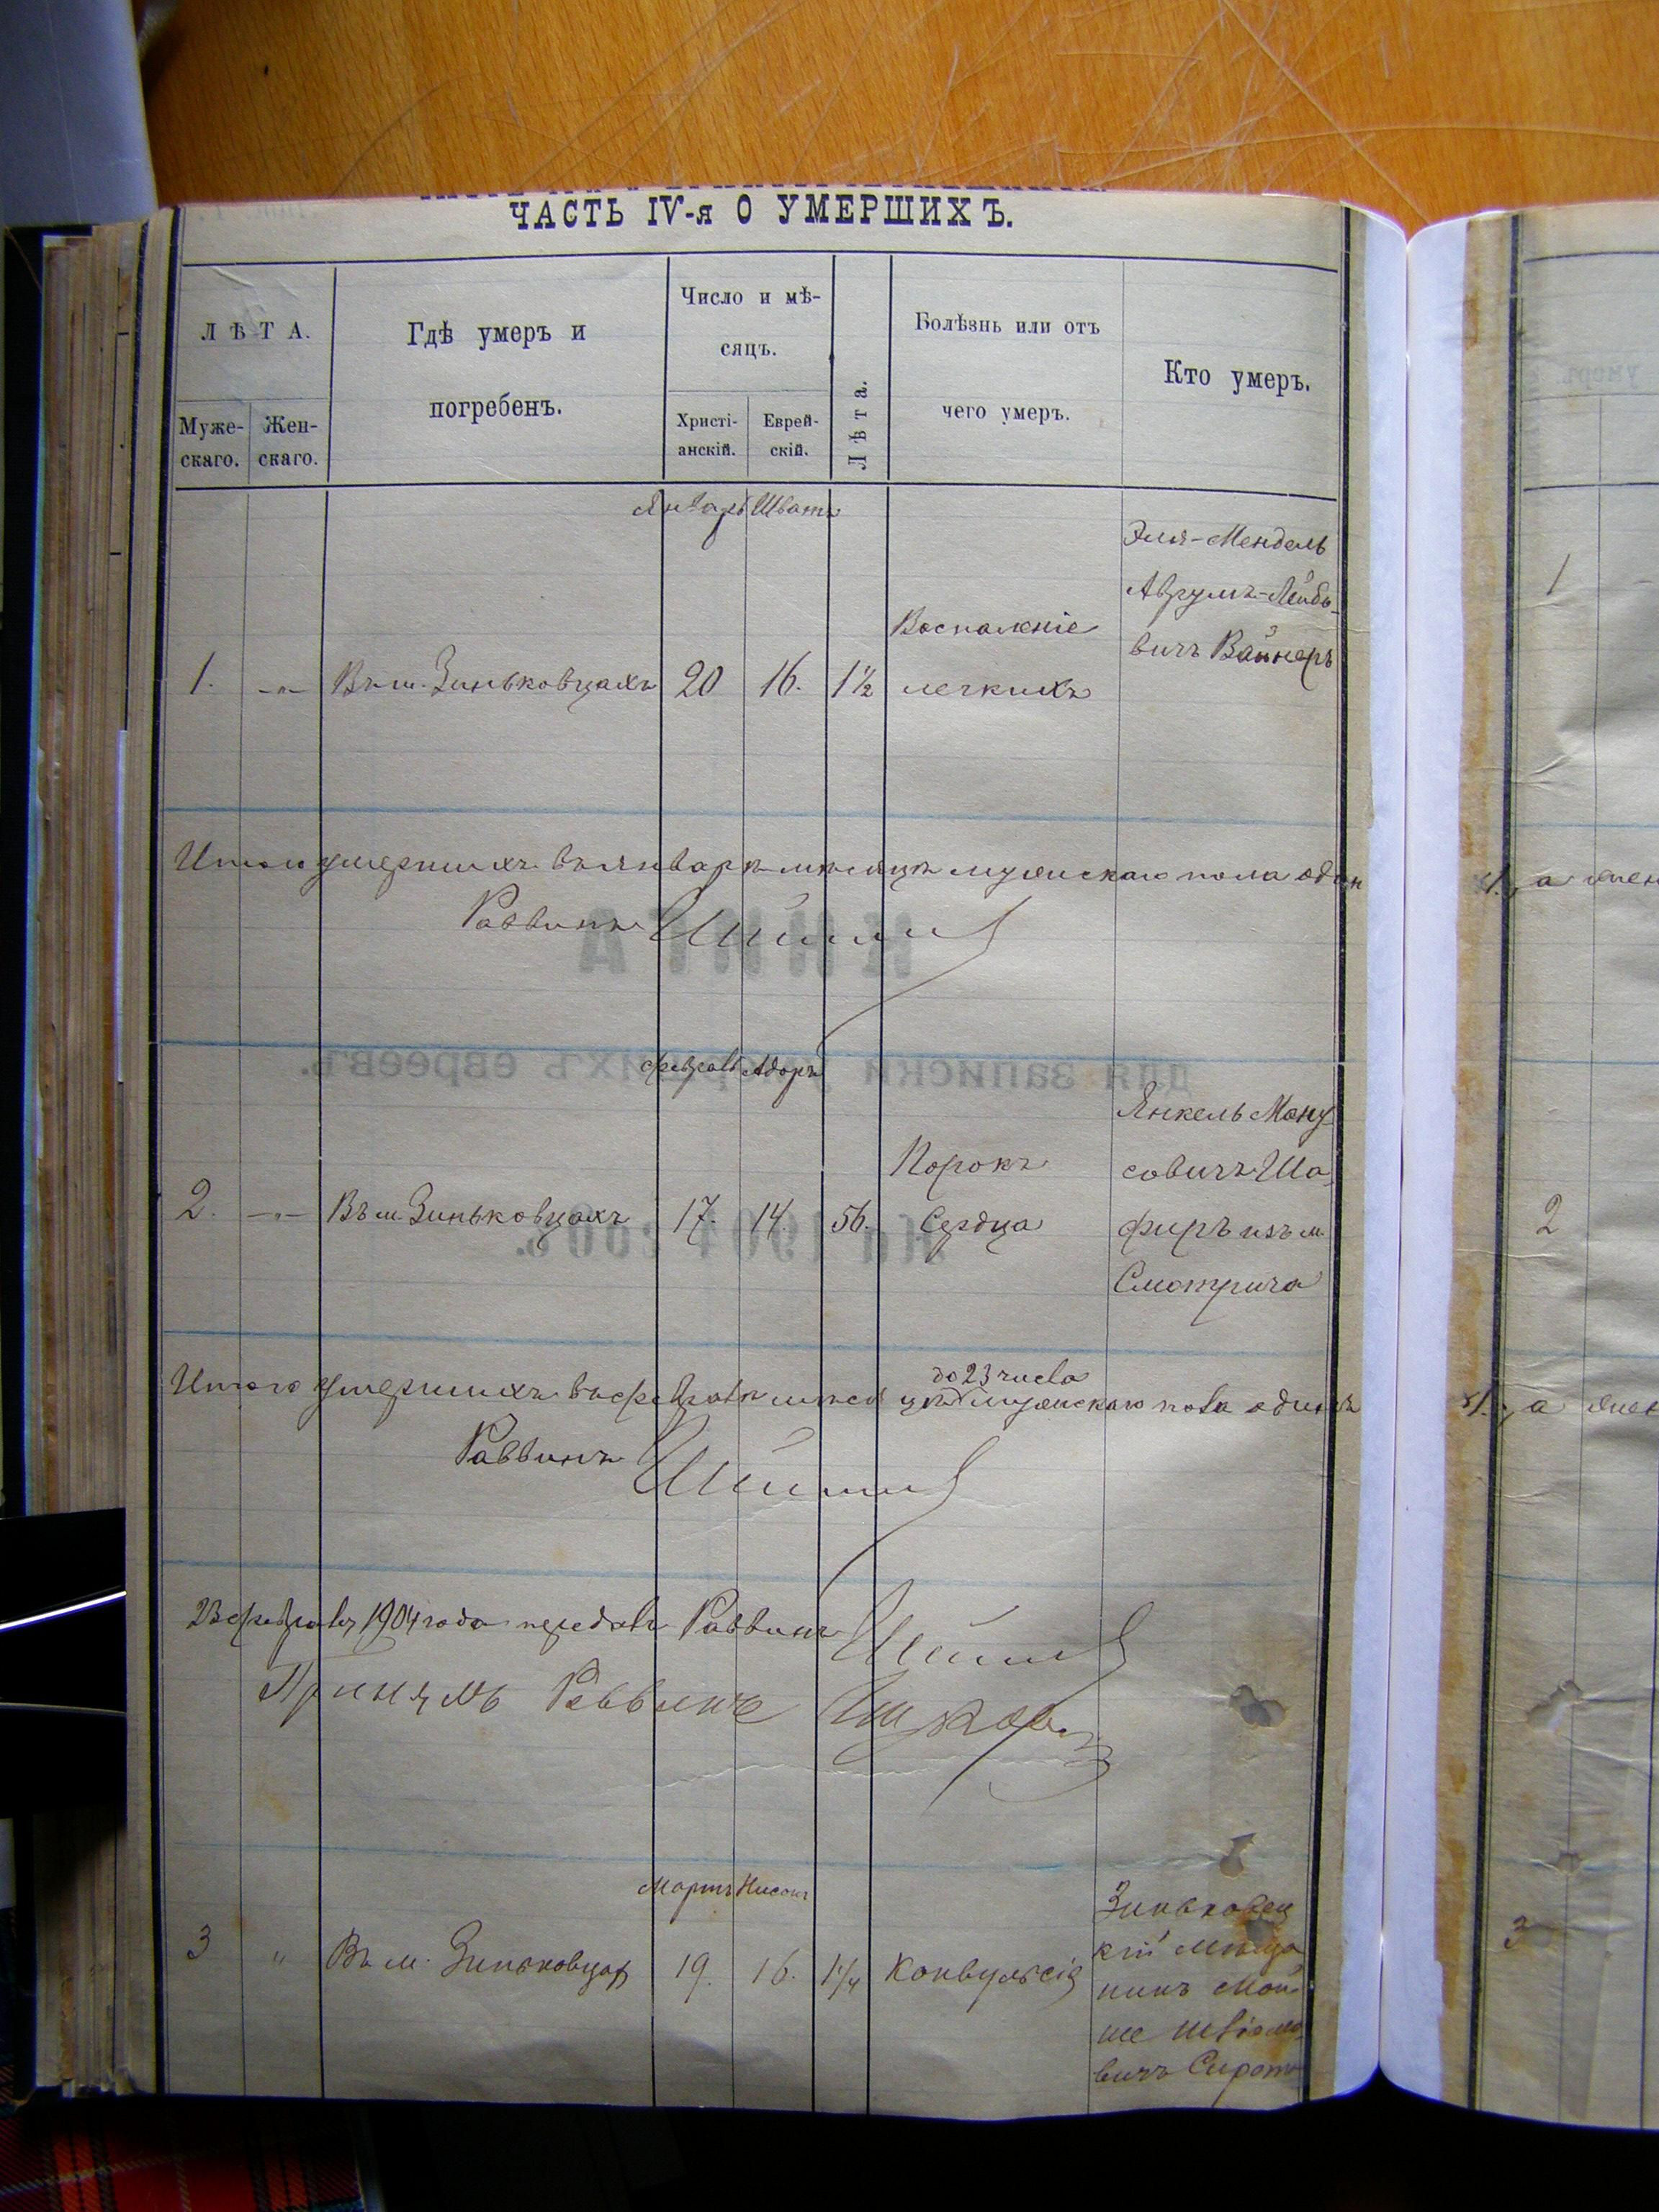 ЧАСТЬ IV-я О УМЕРШИХЪ.
ЛѢТА.
Муже-
скаго.
Жен-
скаго.
Гдѣ умеръ и
погребенъ.
Число и мѣ-
сяцъ.
Христі-
анскій.
Еврей-
скій.
Лѣта.
Болѣзнь или отъ
чего умеръ.
Кто умеръ.
Январь Шватъ
1. -"- Въ м. Зиньковцахъ 20 16. 1½
Воспаленіе
легкихъ
Эля-Мендель
Аврумъ-Лейбо-
вичъ Вайнеръ
1
Итого умершихъ въ январѣ мѣсяцѣ мужскаго пола один
1. а жен
Раввинъ
КНИГА
для записки умершихъ евреевъ.
На 1904 годъ.
Февраль Адаръ
2. -"- Въ м. Зиньковцахъ 17. 14. 56.
Порокъ
Сердца
Янкель Ману-
совичъ Ша-
фиръ изъ м.
Смотрича
2
до 23 числа
Итого умершихъ въ февралѣ мѣсяцѣ мужскаго пола одинъ
1. а жен
Раввинъ
23 февраля 1904 года передалъ Раввинъ
Принялъ Раввинъ
Мартъ Нисонъ
3 " Въ м. Зиньковцах 19. 16. 1¼ Конвульсія
Зиньковец
кій мѣща
нинъ Мой
ше
вичъ Сирота
3